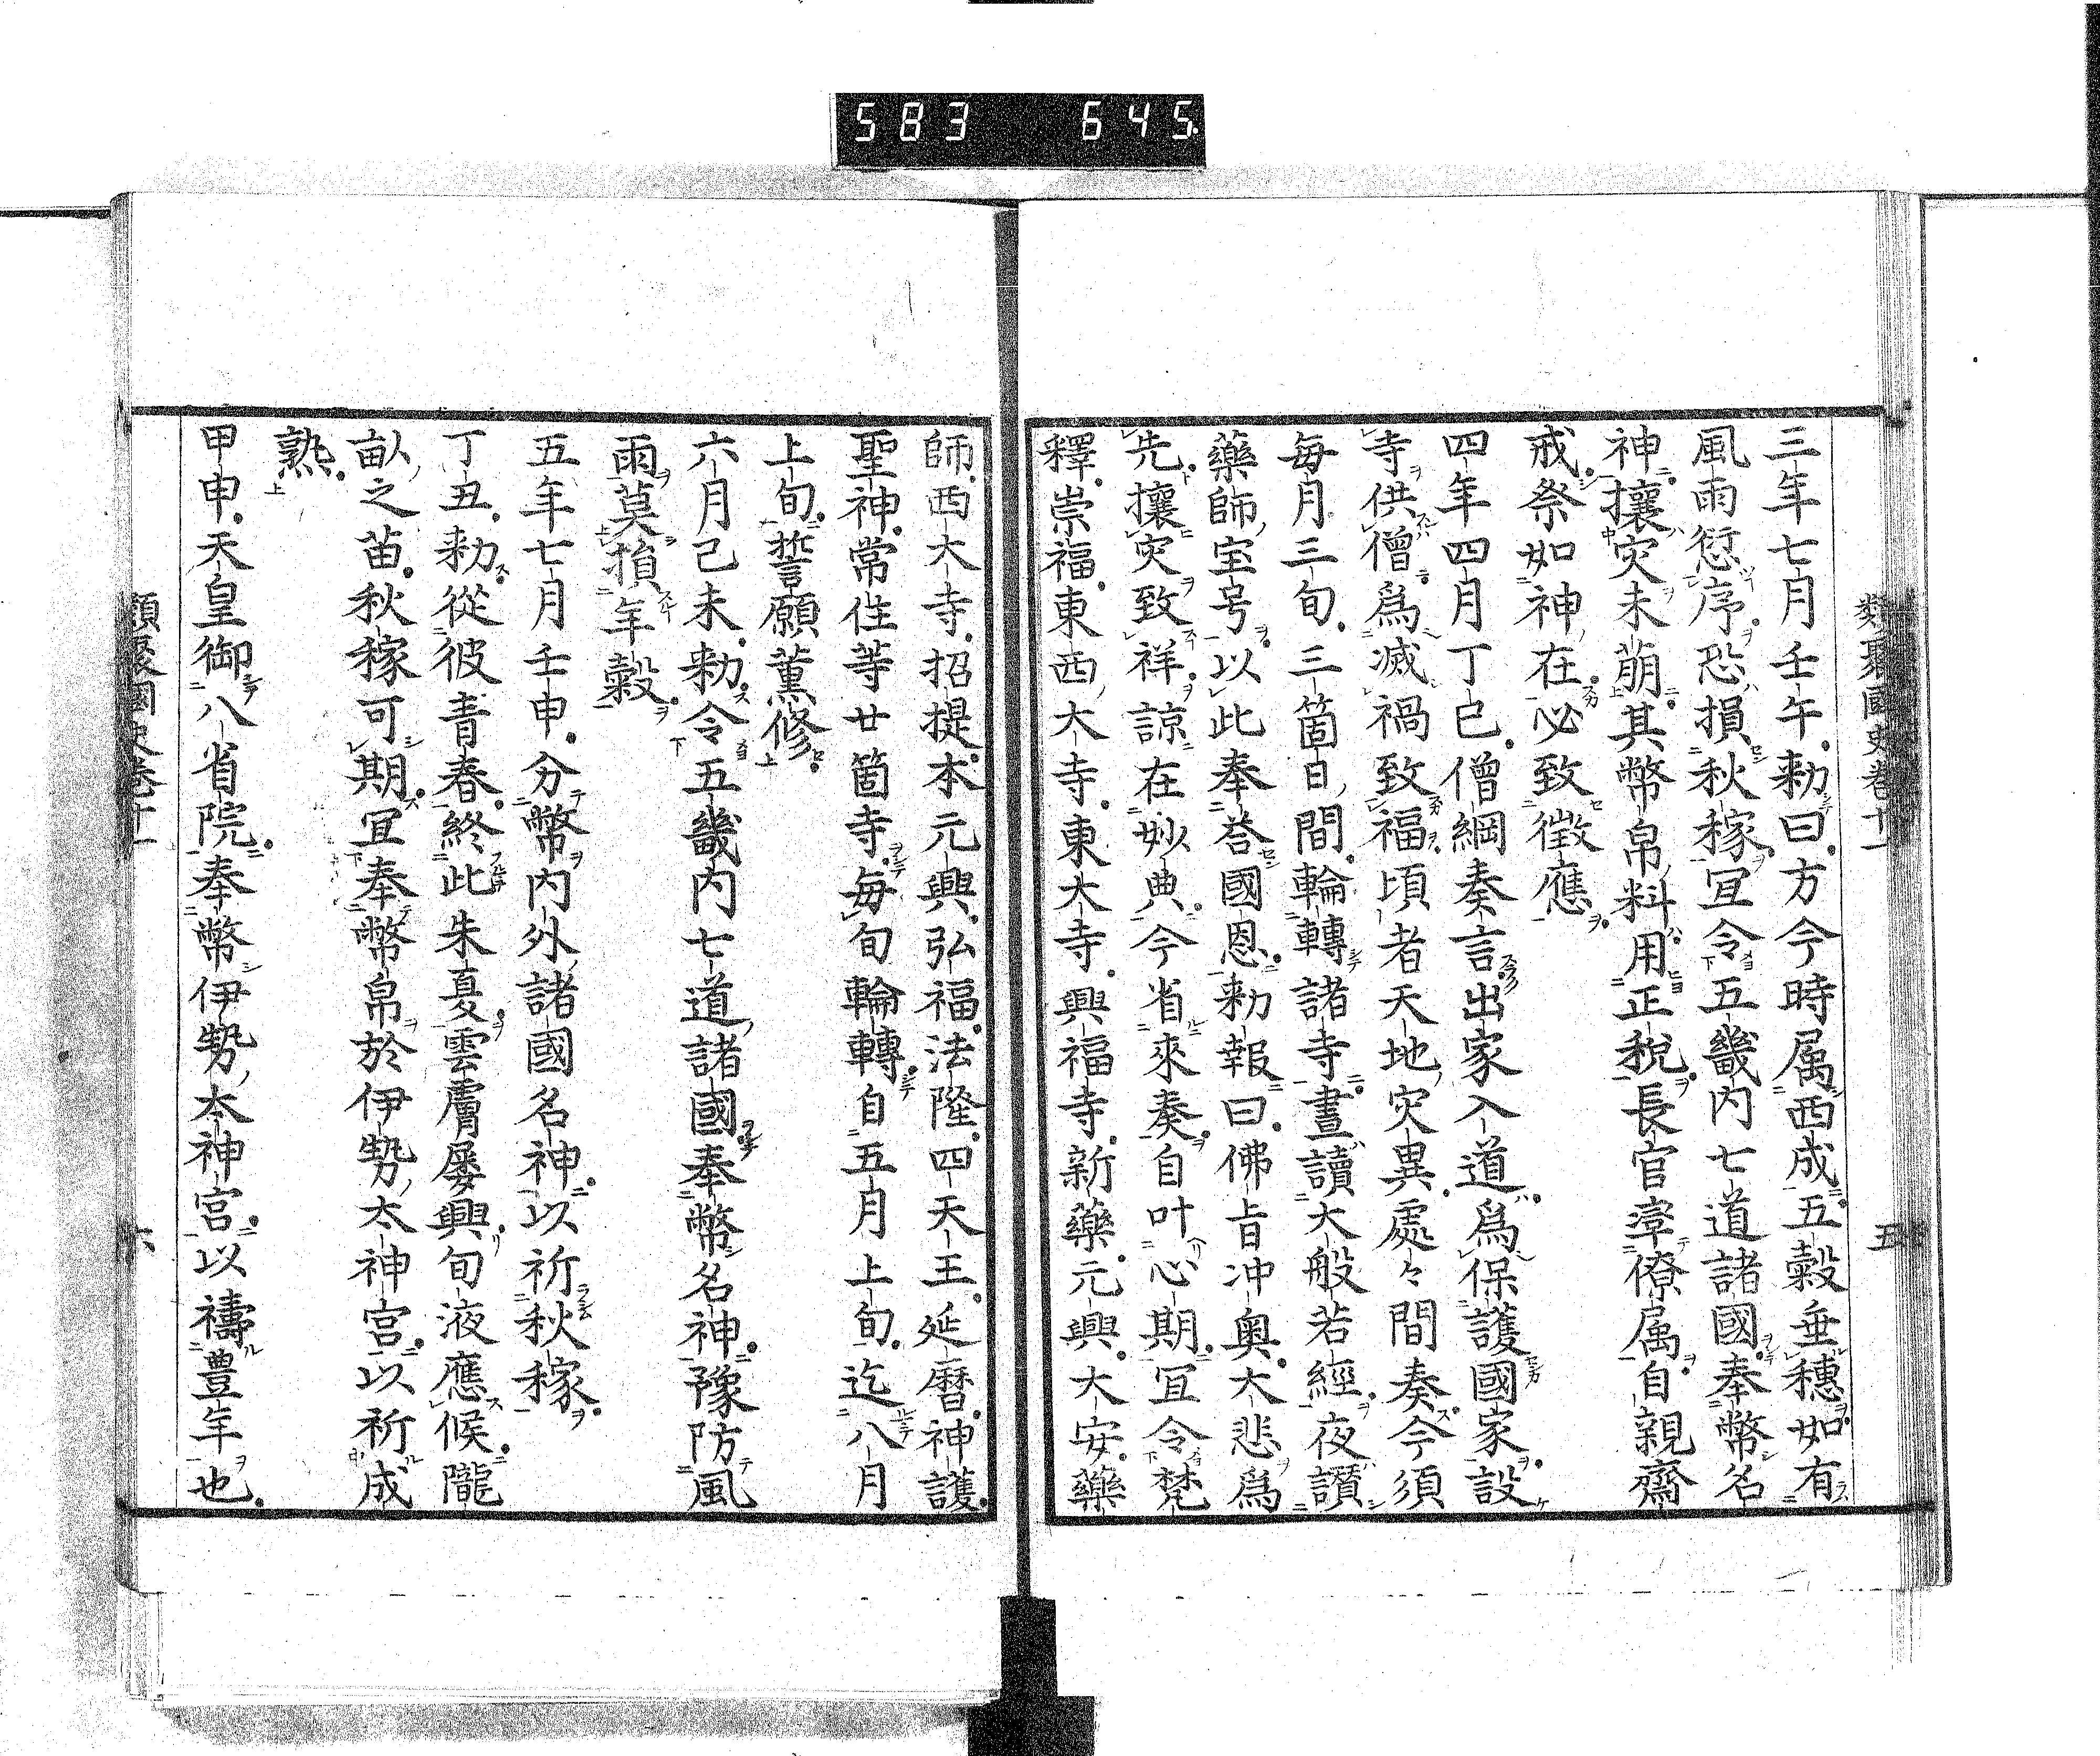 583 645
類聚國史卷十一 五
三年七月壬午勅曰方今時属西成五穀垂穗如有
風雨愆序恐損秋稼冝令五畿内七道諸國奉幣名
神攘灾未萠其幣帛料用正税長官率僚属自親齋
戒祭如神在必致徴應
四年四月丁巳僧綱奏言出家入道爲保護國家設
寺供僧爲滅禍致福頃者天地灾異處々間奏今須
毎月三旬三箇日間輪轉諸寺晝讀大般若經夜讃
藥師宝号以此奉荅國恩勅報曰佛旨冲奥大悲爲
先攘灾致祥諒在妙典今省來奏自叶心期冝令梵
釋崇福東西大寺東大寺興福寺新藥元興大安藥
師西大寺招提本元興弘福法隆四天王延暦神護
聖神常住等廿箇寺毎旬輪轉自五月上旬迄八月
上旬誓願薫修
六月己未勅令五畿内七道諸國奉幣名神豫防風
雨莫損年穀
五年七月壬申分幣内外諸國名神以祈秋稼
丁丑勅從彼青春終此朱夏雲膚屡興旬液應候隴
畝之苗秋稼可期冝奉幣帛於伊勢太神宮以祈成
熟
甲申天皇御八省院奉幣伊勢太神宮以禱豊年也
類聚國史卷十一 六